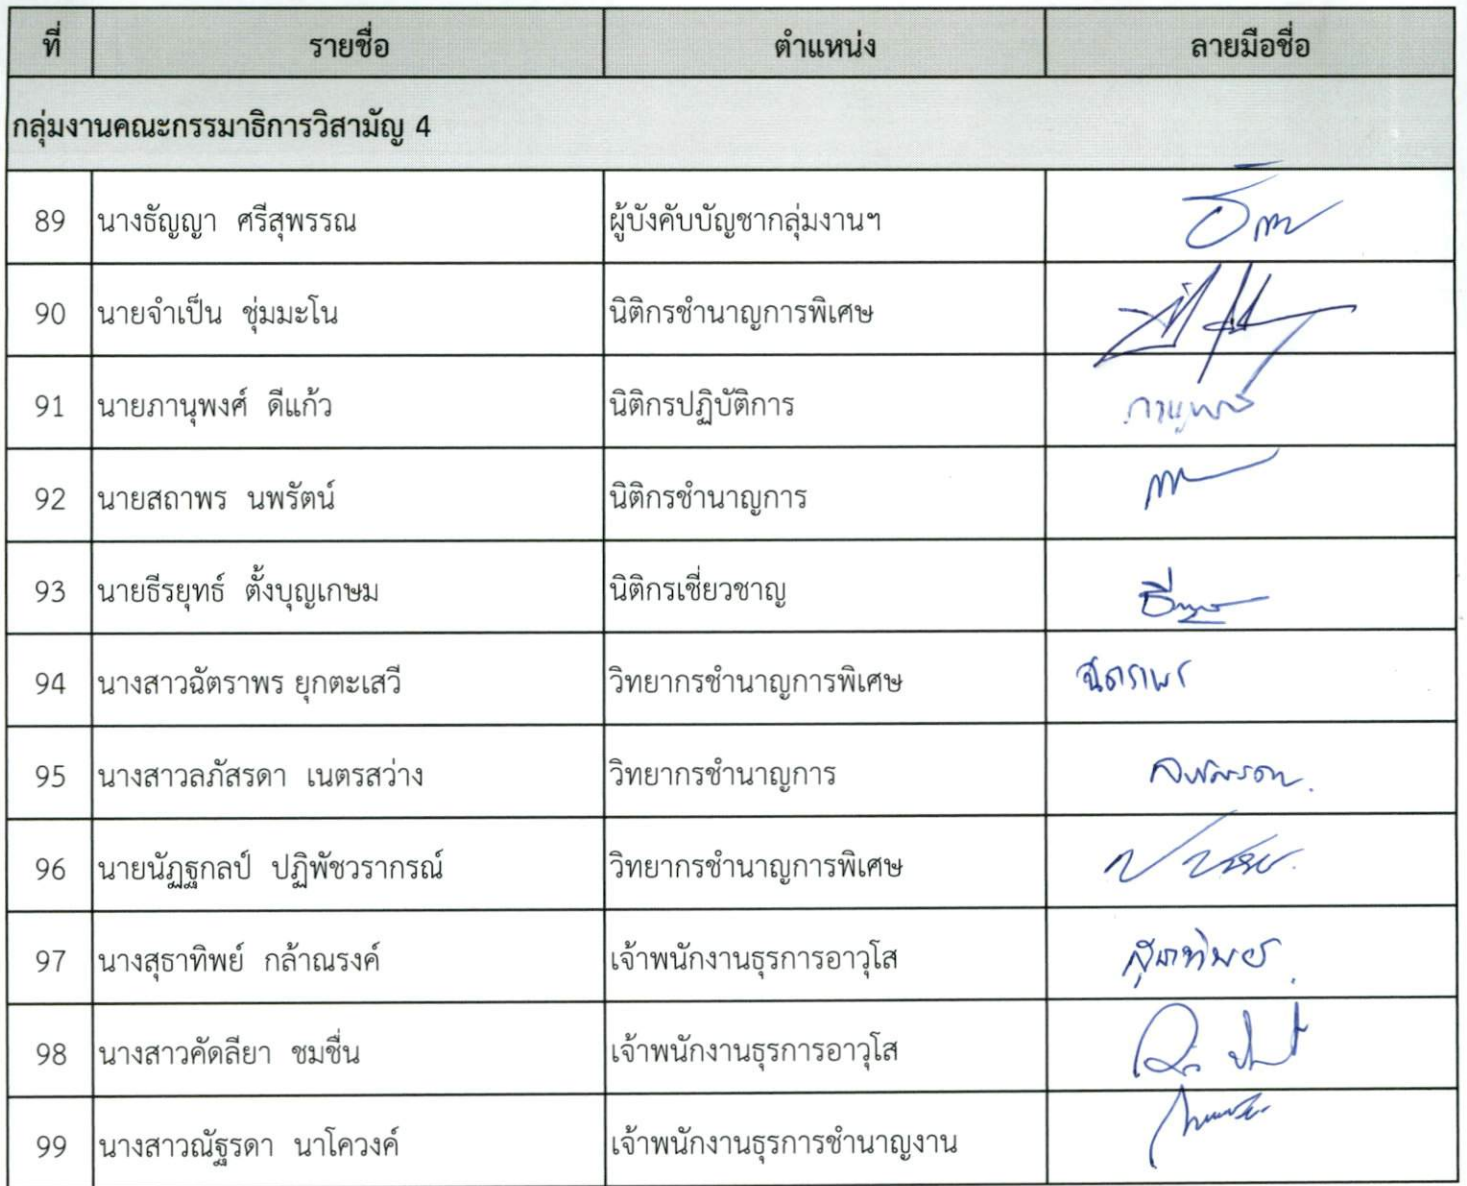 ที่ รายชื่อ ตำแหน่ง ลายมือชื่อ
กลุ่มงานคณะกรรมาธิการวิสามัญ 4
89 นางธัญญา ศรีสุพรรณ ผู้บังคับบัญชากลุ่มงานฯ
90 นายจำเป็น ชุ่มมะโน นิติกรชำนาญการพิเศษ
91 นายภานุพงศ์ ดีแก้ว นิติกรปฏิบัติการ ภานุพงศ์
92 นายสถาพร นพรัตน์ นิติกรชำนาญการ
93 นายธีรยุทธ์ ตั้งบุญเกษม นิติกรเชี่ยวชาญ
94 นางสาวฉัตราพร ยุกตะเสวี วิทยากรชำนาญการพิเศษ ฉัตราพร
95 นางสาวลภัสรดา เนตรสว่าง วิทยากรชำนาญการ ลภัสรดา
96 นายนัฏฐกลป์ ปฏิพัชวรากรณ์ วิทยากรชำนาญการพิเศษ
97 นางสุธาทิพย์ กล้าณรงค์ เจ้าพนักงานธุรการอาวุโส สุธาทิพย์
98 นางสาวคัดลียา ชมชื่น เจ้าพนักงานธุรการอาวุโส
99 นางสาวณัฐรดา นาโควงค์ เจ้าพนักงานธุรการชำนาญงาน